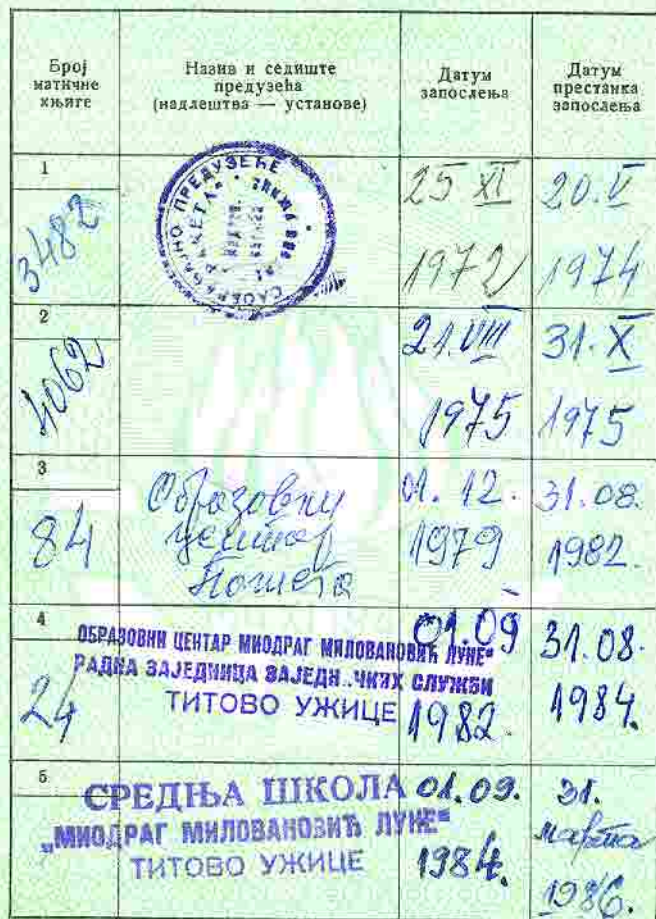 Број
матичне
књиге
Назив и седиште
предузећа
(надлештва — установе)
Датум
запослења
Датум
престанка
запослења
1
3482
САОБРАЋАЈНО ПРЕДУЗЕЋЕ
25 XI
1972
20. V
1974
2
4062
21. VIII
1975
31. X
1975
3
84
Образовни
центар
01. 12.
1979
31. 08.
1982.
4
24
ОБРАЗОВНИ ЦЕНТАР МИОДРАГ МИЛОВАНОВИЋ ЛУНЕ"
РАДНА ЗАЈЕДНИЦА ЗАЈЕДН..ЧКИХ СЛУЖБИ
ТИТОВО УЖИЦЕ
01.09
1982.
31.08.
1984.
5
СРЕДЊА ШКОЛА
„МИОДРАГ МИЛОВАНОВИЋ ЛУНЕ"
ТИТОВО УЖИЦЕ
01.09.
1984.
31.
марта
1986.